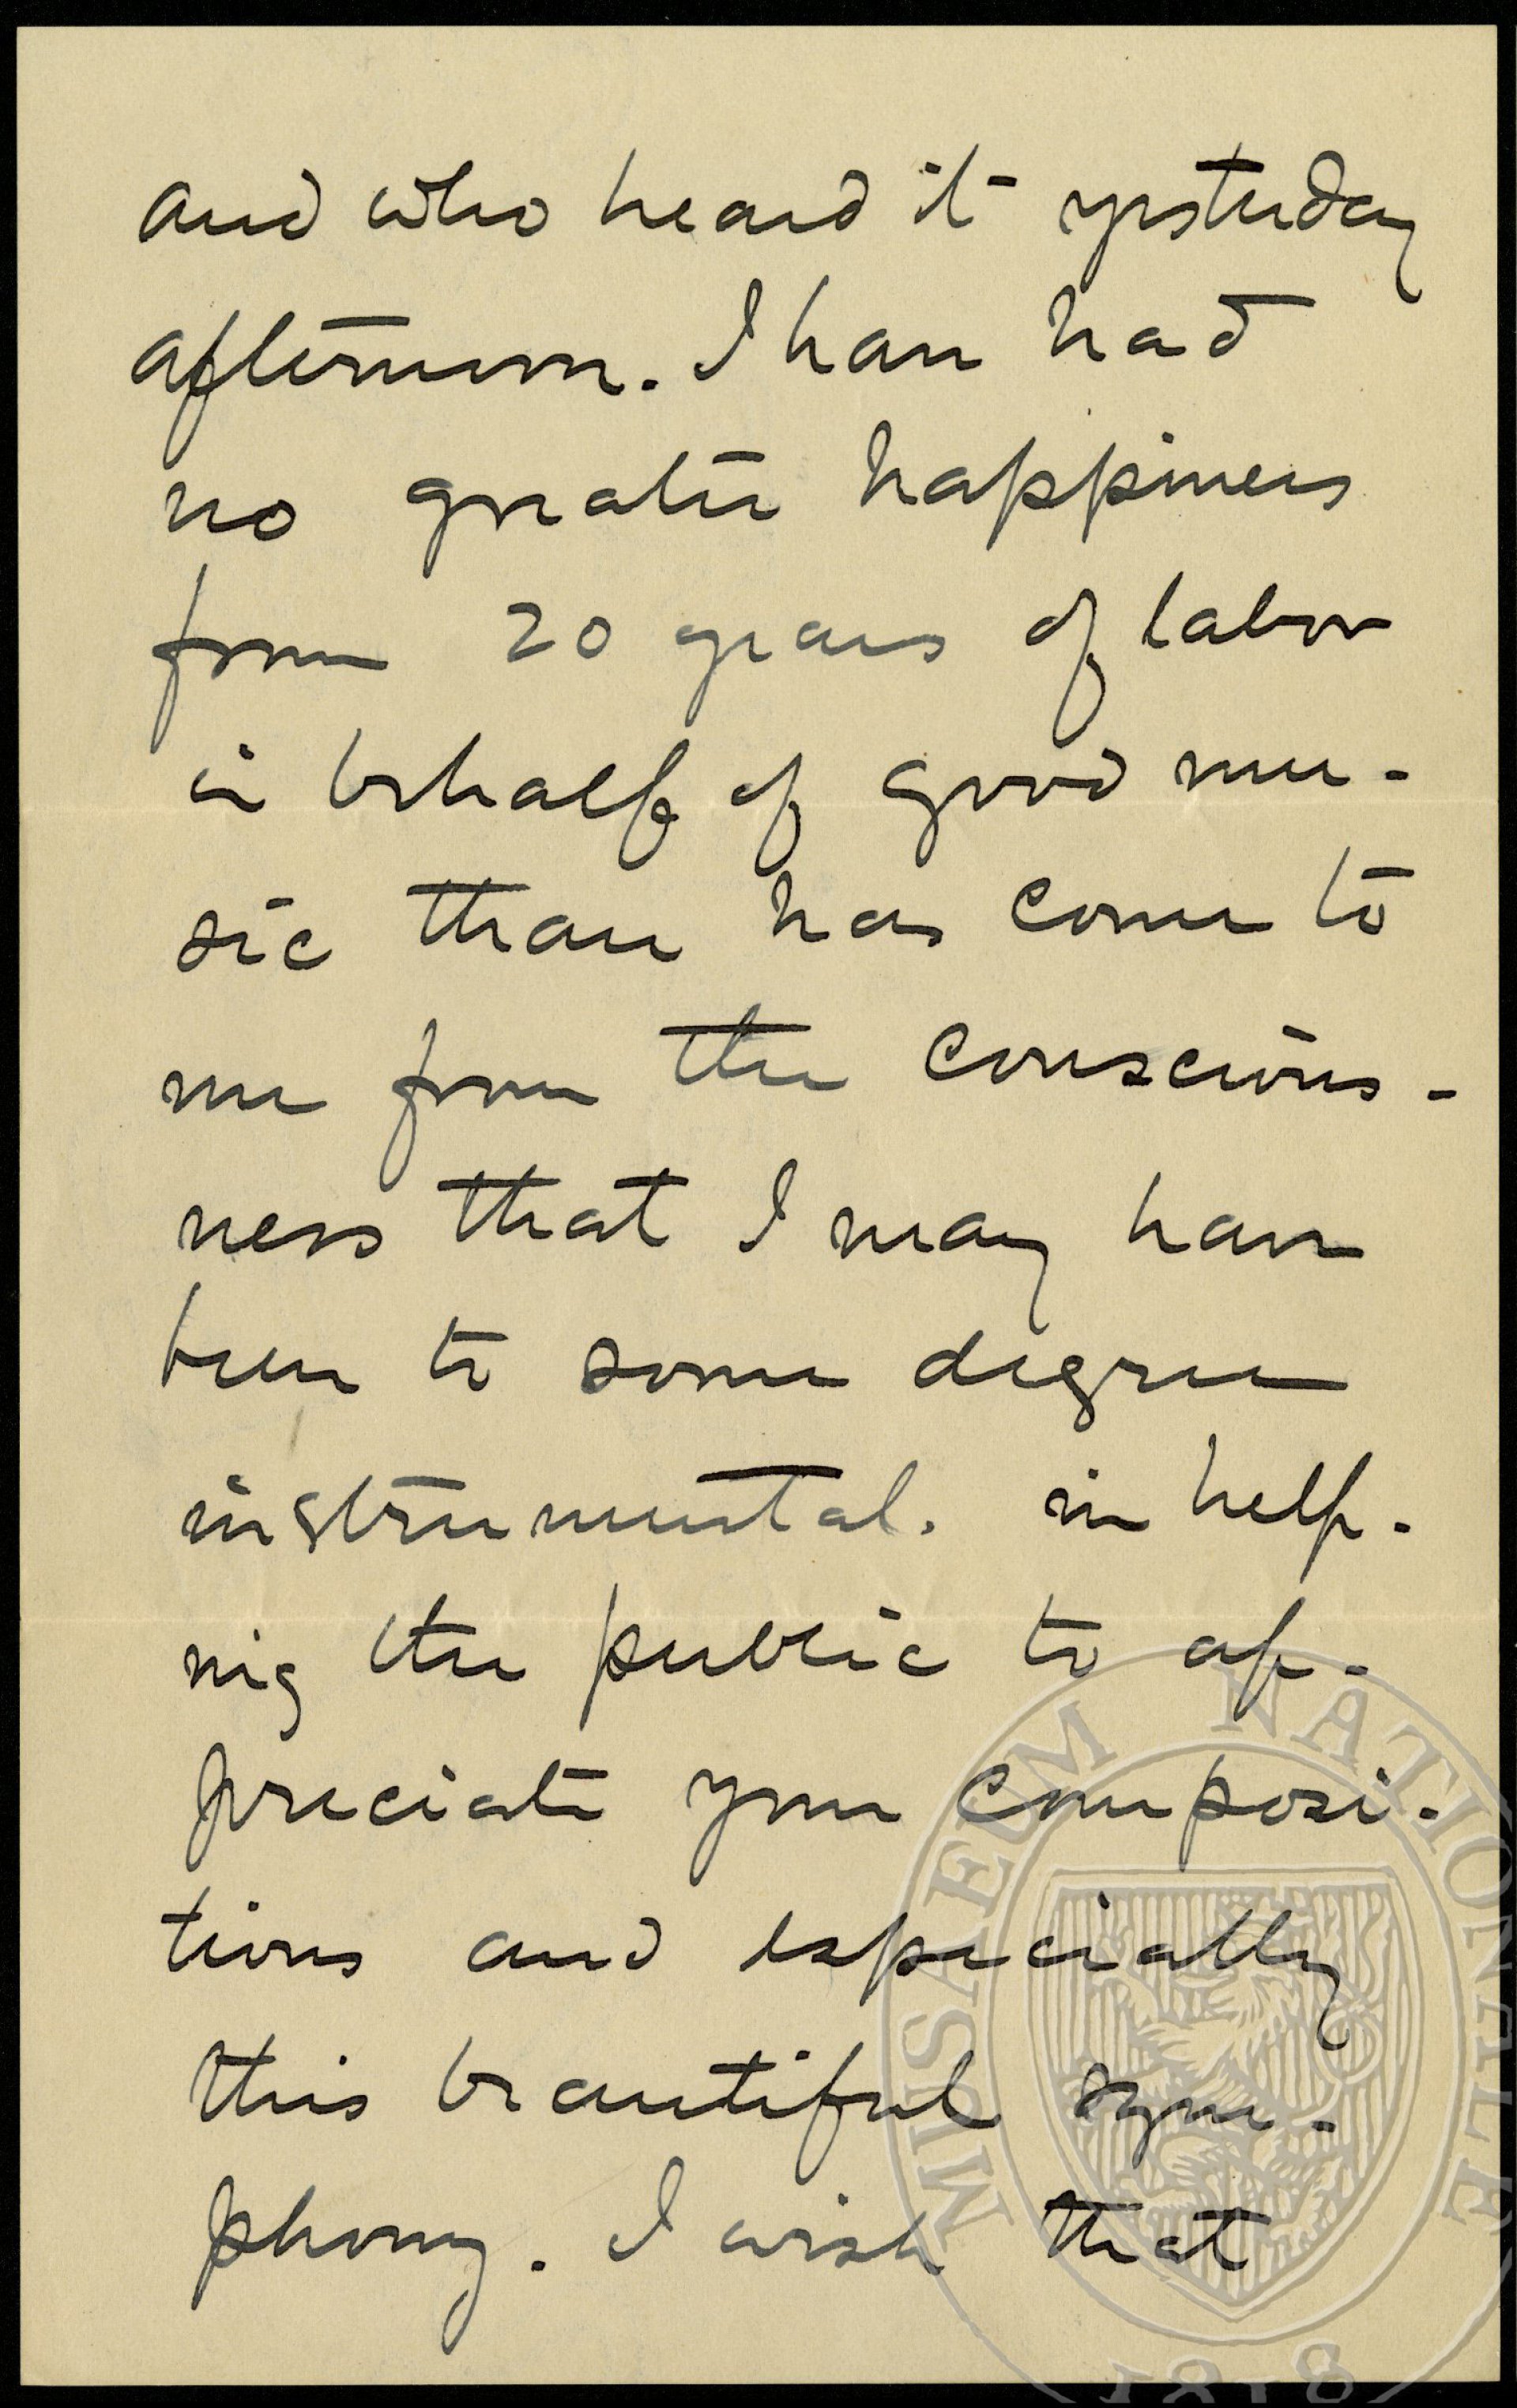 and who heard it yesterday
afternoon. I have had
no greater happiness
from 20 years of labor
in behalf of good mu-
sic than has come to
me from the conscious-
ness that I may have
been to some degree
instrumental. in help-
ing the public to ap-
preciate your composi-
tions and especially
this beautiful sym-
phony. I wish that
MUSAEUM NATIONALE
1818